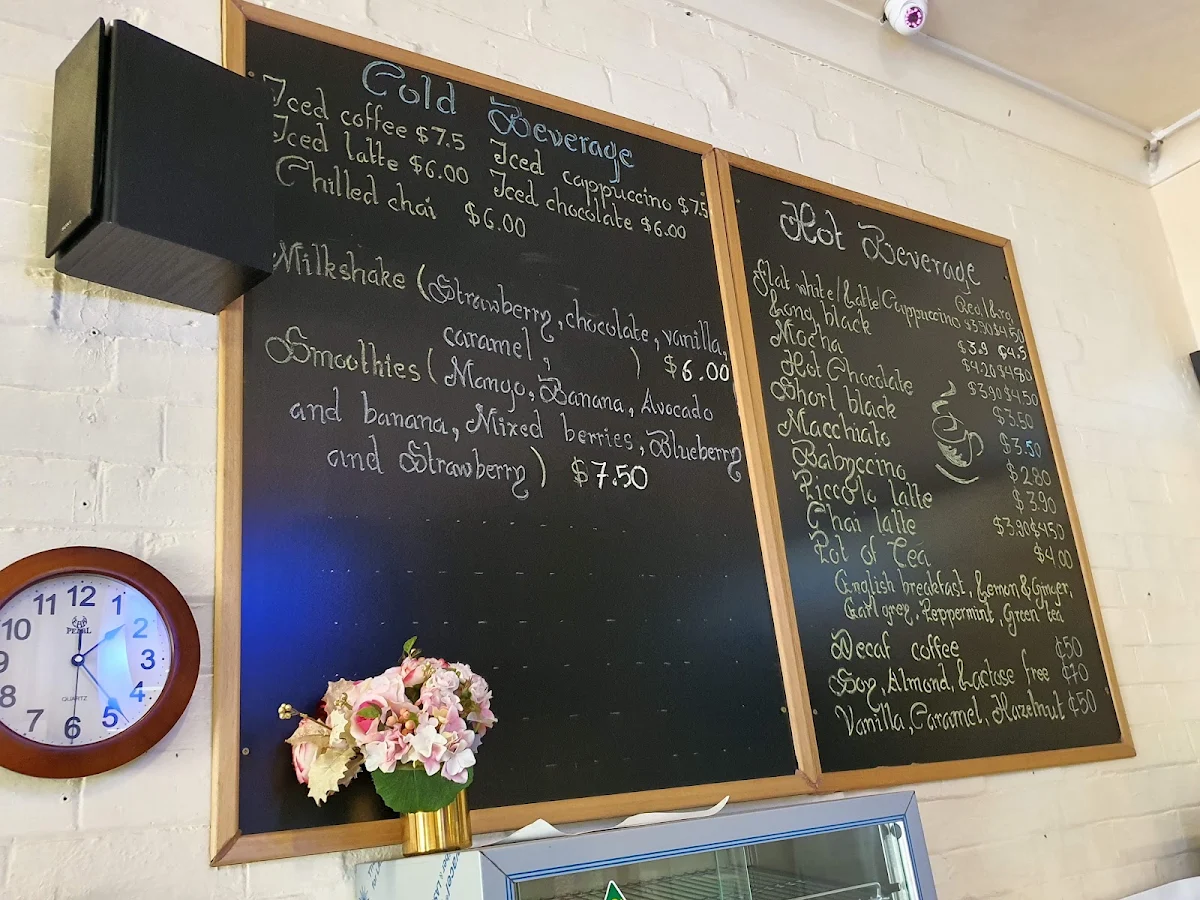 Cold Beverage
Iced coffee $7.5 Iced cappuccino $7.5
Iced latte $6.00 Iced chocolate $6.00
Chilled chai $6.00
Milkshake (Strawberry, chocolate, vanilla,
caramel, ) $6.00
Smoothies (Mango, Banana, Avocado
and banana, Mixed berries, Blueberry
and Strawberry) $7.50
Hot Beverage
Reg/Lrg
Flat white/Latte/Cappuccino $3.90 $4.50
Long black $3.9 $4.5
Mocha $4.20 $4.80
Hot Chocolate $3.90 $4.50
Short black $3.50
Macchiato $3.50
Babyccino $2.80
Piccolo latte $3.90
Chai latte $3.90 $4.50
Pot of Tea $4.00
English breakfast, Lemon & Ginger,
Earl grey, Peppermint, Green tea
Decaf coffee ¢50
Soy, Almond, Lactose free ¢70
Vanilla, Caramel, Hazelnut ¢50
12
11 1
10 2
PEARL
9 3
8 4
QUARTZ
7 5
6